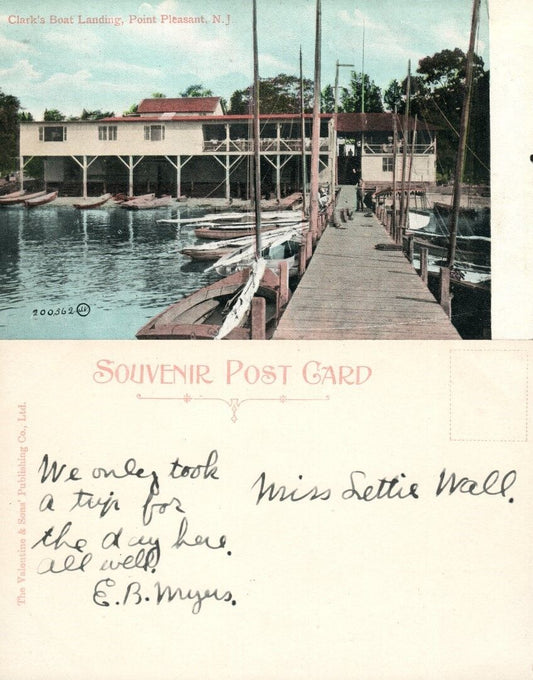 Clark's Boat Landing, Point Pleasant, N.J
200362 JV
SOUVENIR POST CARD
The Valentine & Sons' Publishing Co., Ltd.
We only took
a trip for
the day here.
all well.
E.B. Myers.
Miss Lettie Wall.